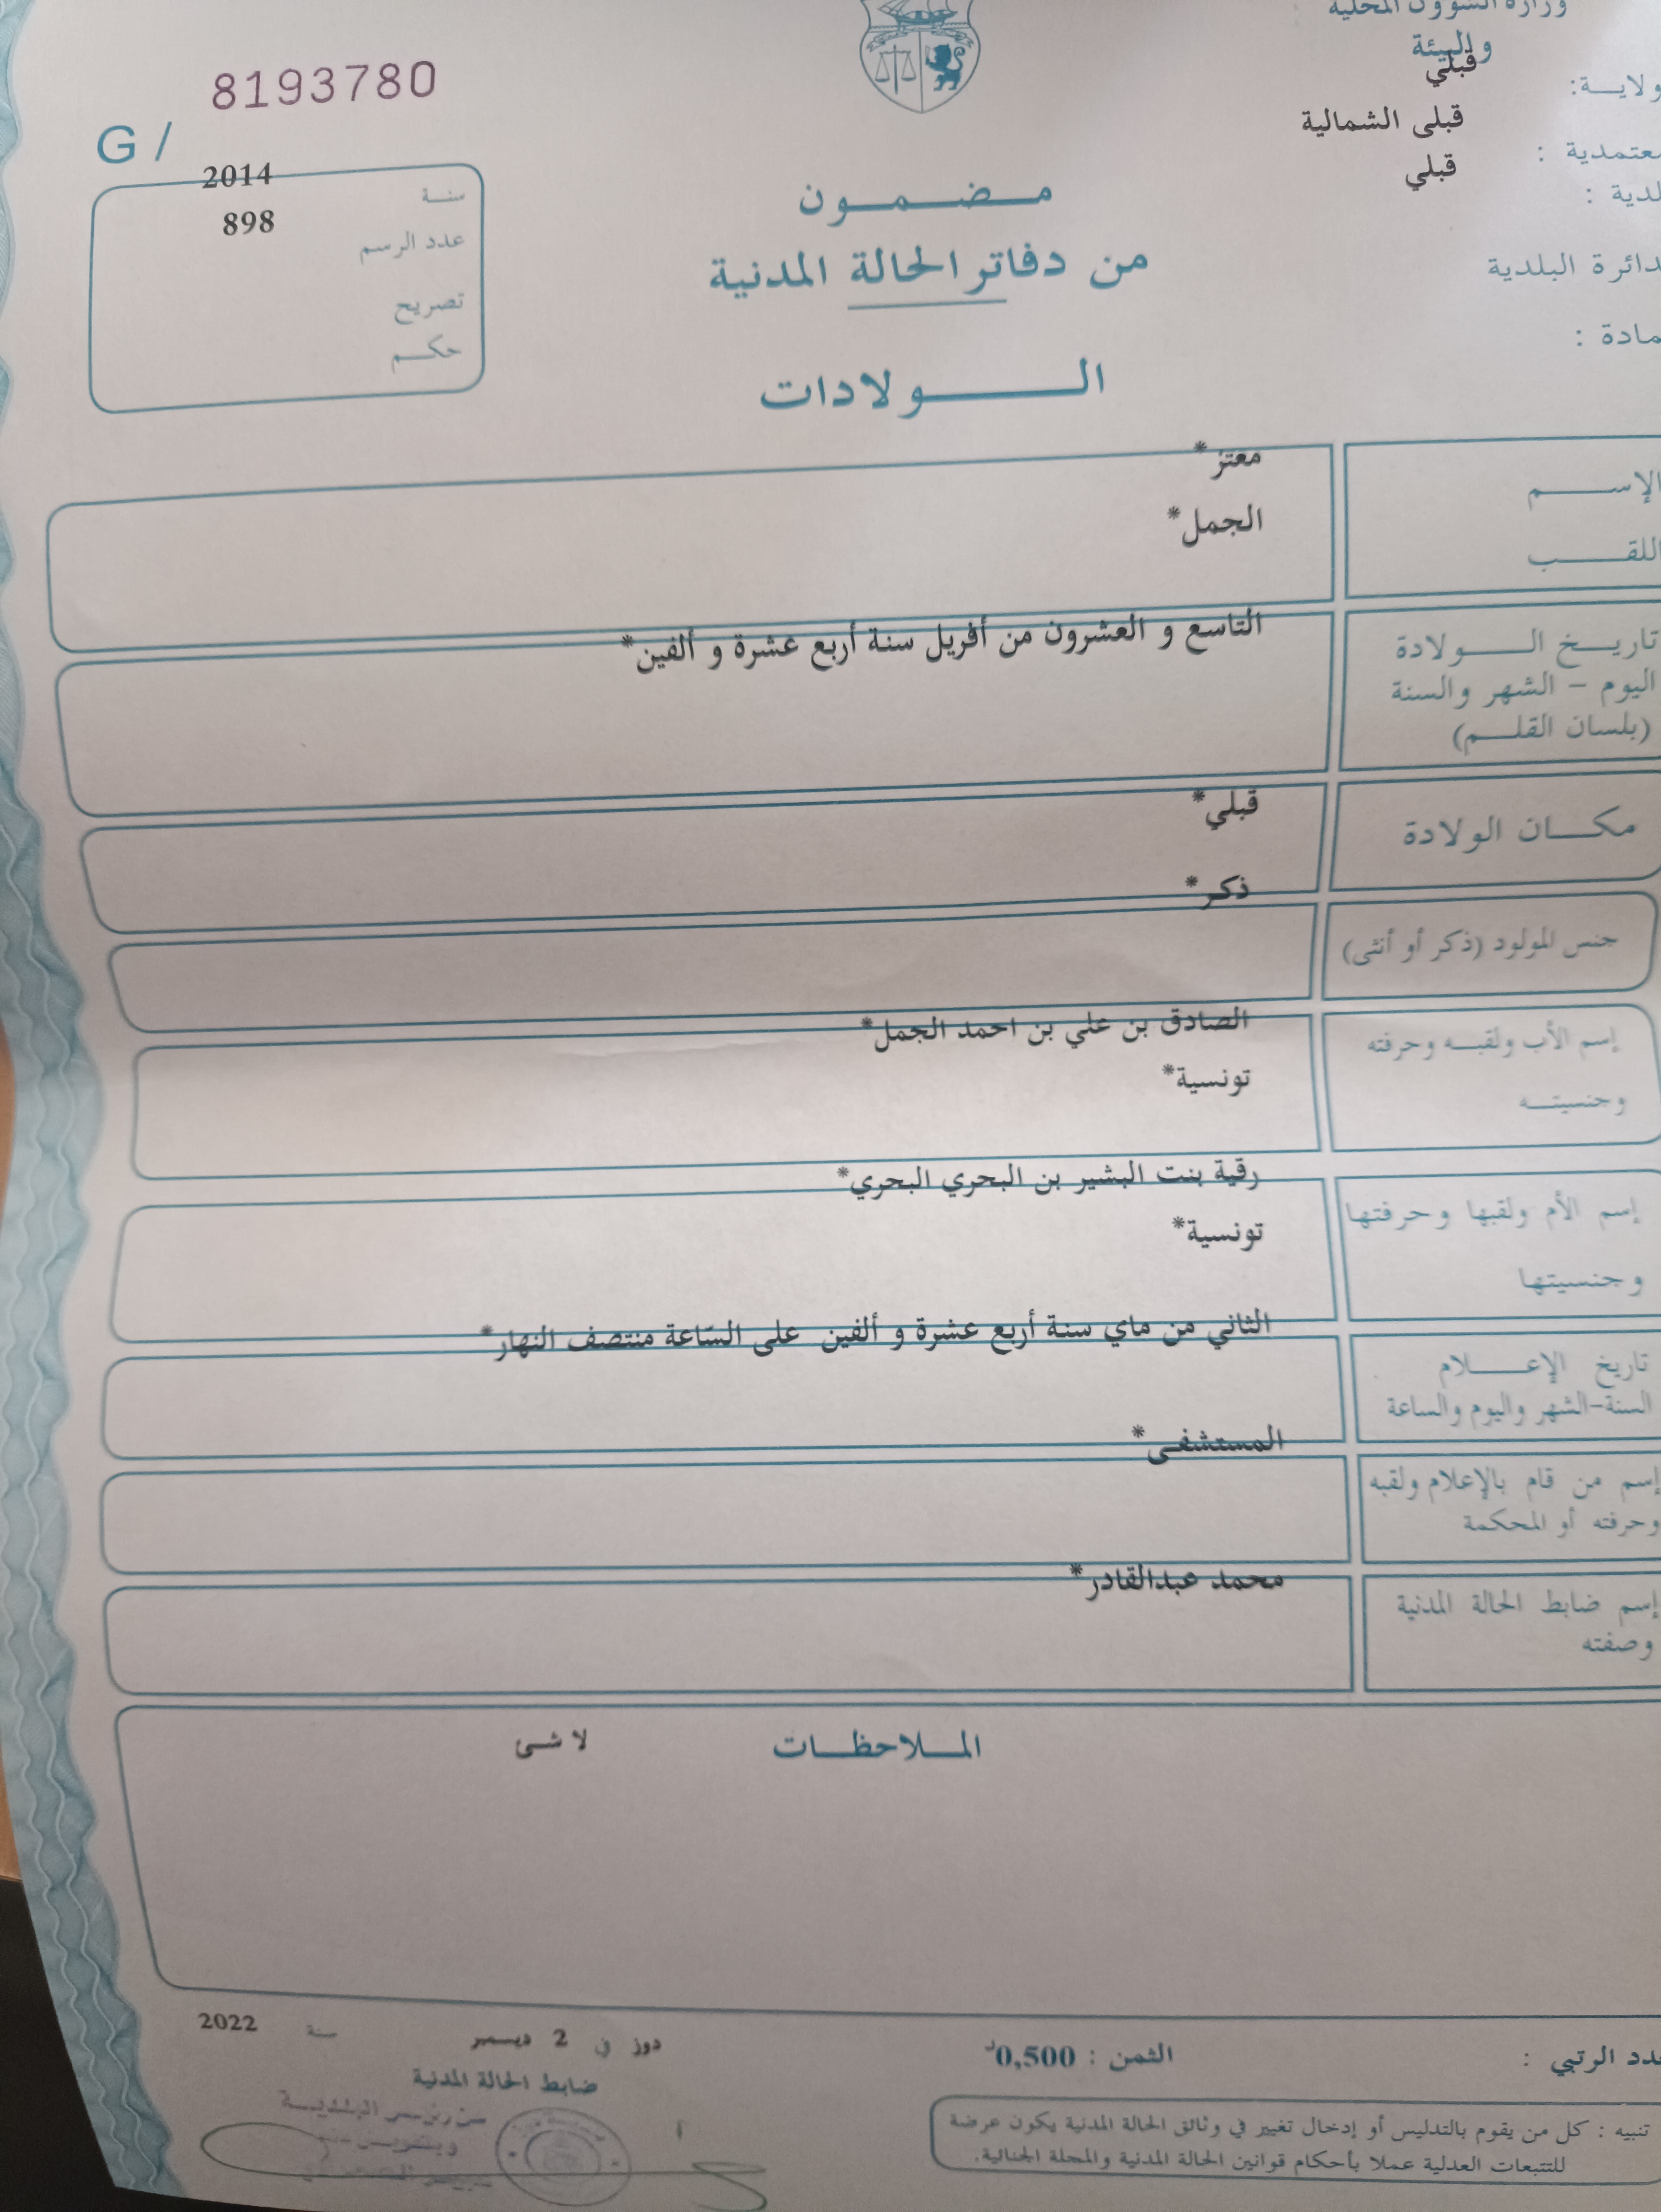 وزارة الشؤون المحلية
والبيئة
ولايـــة: قبلي
معتمدية : قبلى الشمالية
بلدية : قبلي
دائرة البلدية
عمادة :
8193780
G /
سنـة 2014
عدد الرسم 898
تصريح
حكـــم
مـــضـــمـــون
من دفاتر الحالة المدنية
الــــــولادات
الإســــــم معتز*
اللقــــــب الجمل*
تاريـــخ الـــــولادة التاسع و العشرون من أفريل سنة أربع عشرة و ألفين*
اليوم – الشهر والسنة
(بلسان القلـــم)
مكـــان الولادة قبلي*
ذكر*
جنس المولود (ذكر أو أنثى)
إسم الأب ولقبـــه وحرفته الصادق بن علي بن احمد الجمل*
وجنسيتـــه تونسية*
إسم الأم ولقبها وحرفتها رقية بنت البشير بن البحري البحري*
وجنسيتها تونسية*
تاريخ الإعـــــلام الثاني من ماي سنة أربع عشرة و ألفين على السّاعة منتصف النهار*
السنة-الشهر واليوم والساعة
إسم من قام بالإعلام ولقبه المستشفى*
وحرفته أو المحكمة
إسم ضابط الحالة المدنية محمد عبدالقادر*
وصفته
المـــلاحظـــات لا شئ
عدد الرتبي :
الثمن : 0,500د
دوز في 2 ديسمبر سنة 2022
ضابط الحالة المدنية
تنبيه : كل من يقوم بالتدليس أو إدخال تغيير في وثائق الحالة المدنية يكون عرضة
للتتبعات العدلية عملا بأحكام قوانين الحالة المدنية والمجلة الجنائية.